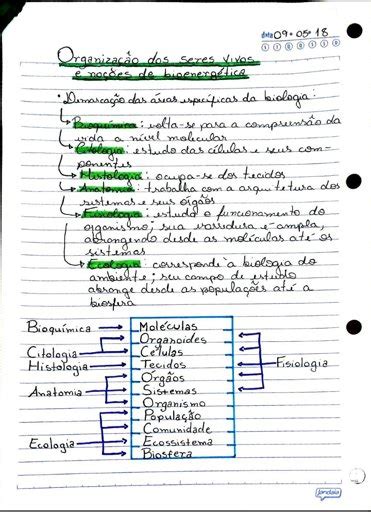 data 09.05.18
Organização dos seres vivos
e noções de bioenergética
• Demarcação das áreas específicas da biologia:
Bioquímica: volta-se para a compreensão da
vida a nível molecular
Citologia: estudo das células e seus com-
ponentes
Histologia: ocupa-se dos tecidos
Anatomia: trabalha com a arquitetura dos
sistemas e seus órgãos
Fisiologia: estuda o funcionamento do
organismo; sua varredura é ampla,
abrangendo desde as moléculas até os
sistemas
Ecologia: corresponde à biologia do
ambiente; seu campo de estudo
abrange desde as populações até a
biosfera
Bioquímica Moléculas
Organoides
Citologia Células
Histologia Tecidos Fisiologia
Órgãos
Anatomia Sistemas
Organismo
População
Comunidade
Ecologia Ecossistema
Biosfera
jandaia